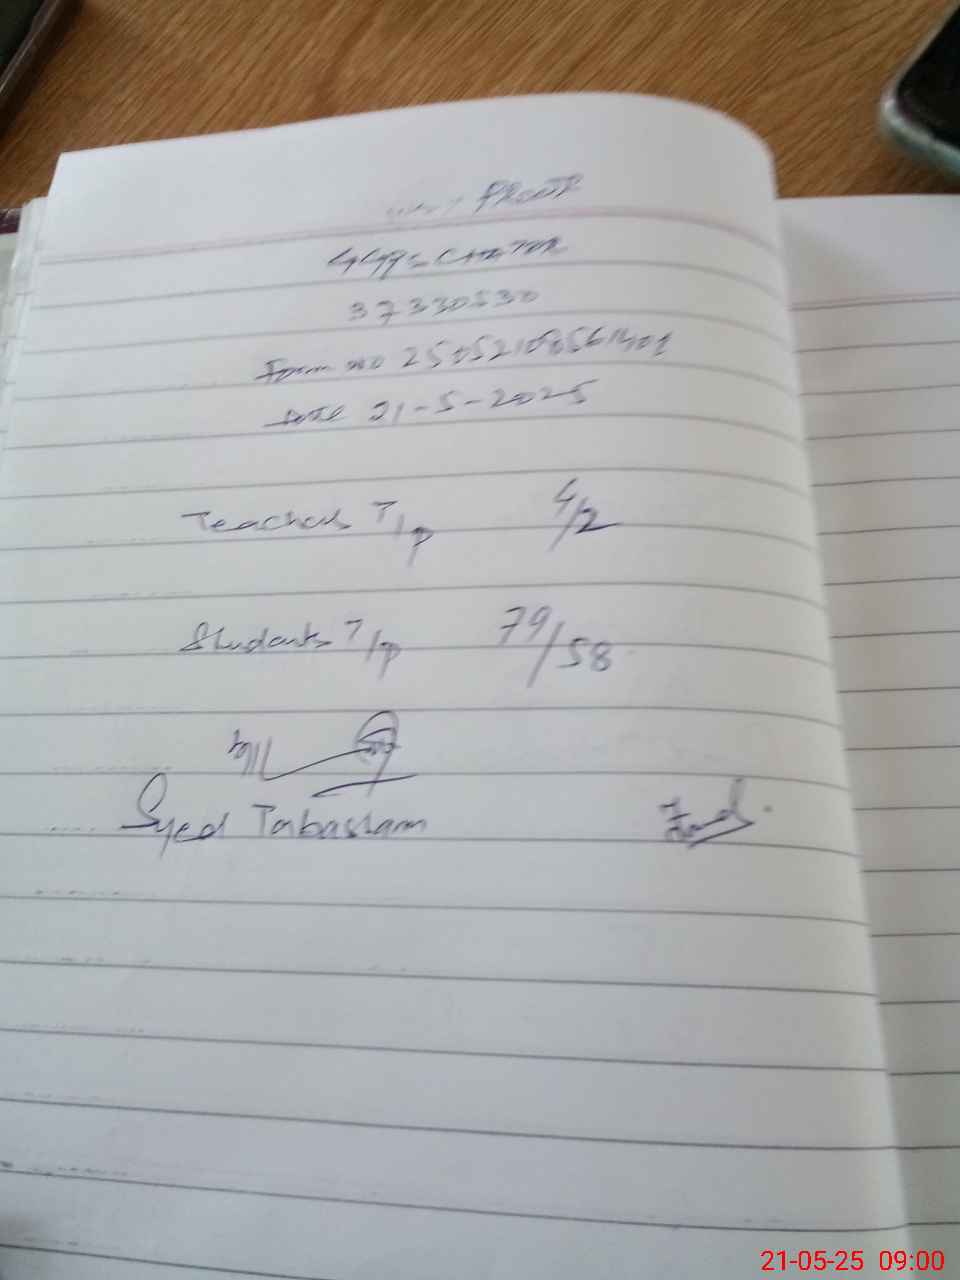 PROOF
37330530
Form no 250521090561401
Date 21-5-2025
Teachers T/p 4/2
Students T/p 79/58
Syed Tabaslam
21-05-25 09:00